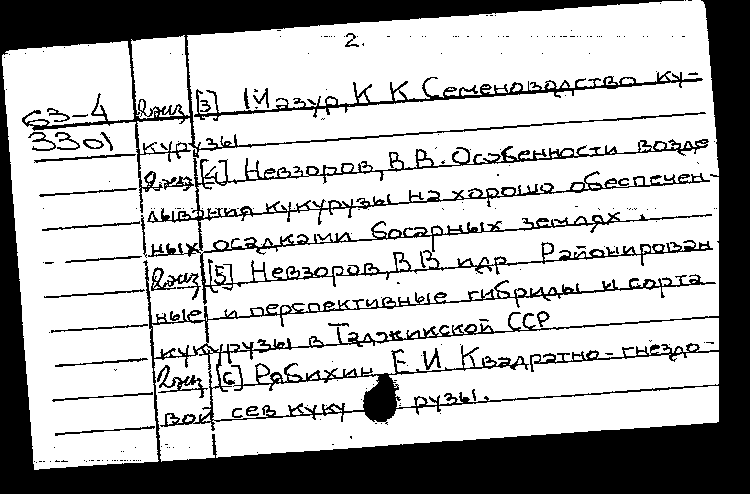 2.
63-4 2экз [3] Мазур, К К Семеноводство ку-
3301 курузы.
2экз [4]. Невзоров, В В. Особенности возде
лывания кукурузы на хорошо обеспечен-
ных осадками богарных землях.
2экз [5]. Невзоров, В В. и др Районирован
ные и перспективные гибриды и сорта
кукурузы в Таджикской ССР
2экз [6] Рябихин Е.И. Квадратно-гнездо-
вой сев куку рузы.